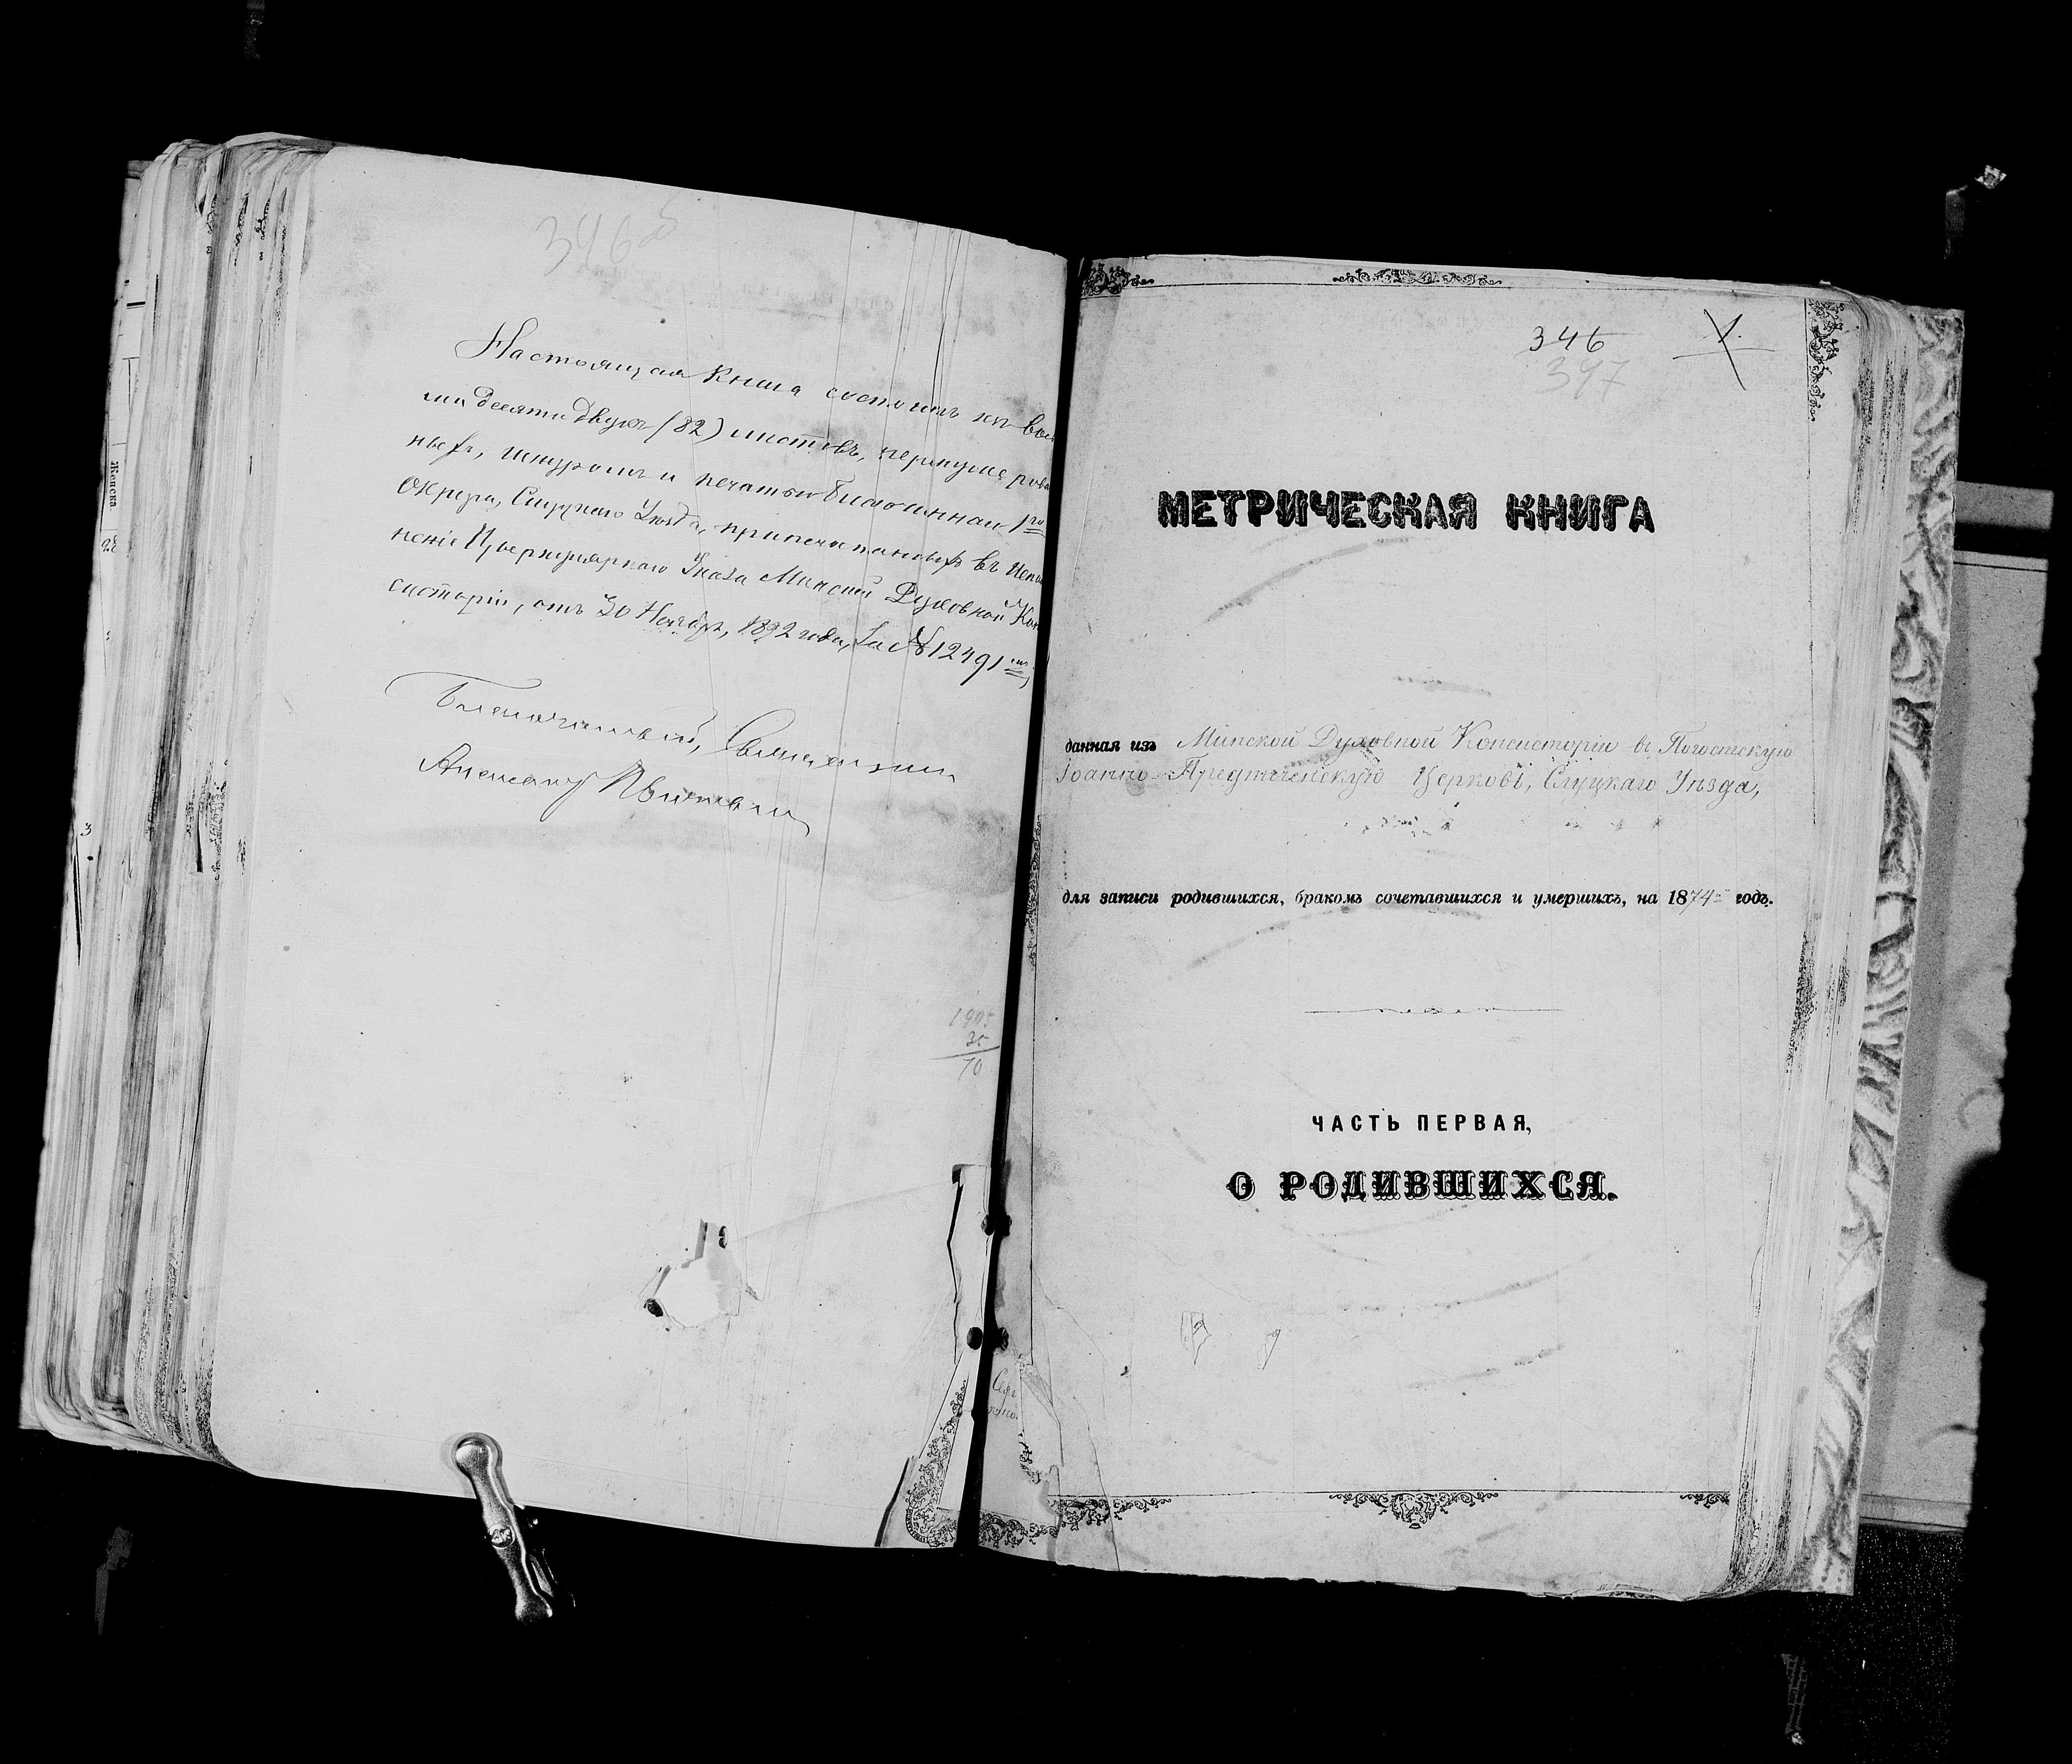 346 б
Настоящая Книга состоитъ изъ вось
мидесяти двухъ (82) листовъ, перенумерова
ныхъ, шнуромъ и печатью Благочиннаго 1го
Округа, Слуцкаго Уѣзда, припечатанныхъ въ испол
неніе Циркулярнаго Указа Минской Духовной Кон
систоріи, отъ 30 Ноября, 1892 года, за № 12491мъ,
Благочинный, Священникъ
1905
35
70
346
397
1.
МЕТРИЧЕСКАЯ КНИГА
данная изъ Минской Духовной Консисторіи въ Погостскую
Іоанно-Предтеченскую Церковь, Слуцкаго Уѣзда,
для записи родившихся, бракомъ сочетавшихся и умершихъ, на 1874 годъ.
ЧАСТЬ ПЕРВАЯ,
О РОДИВШИХСЯ.